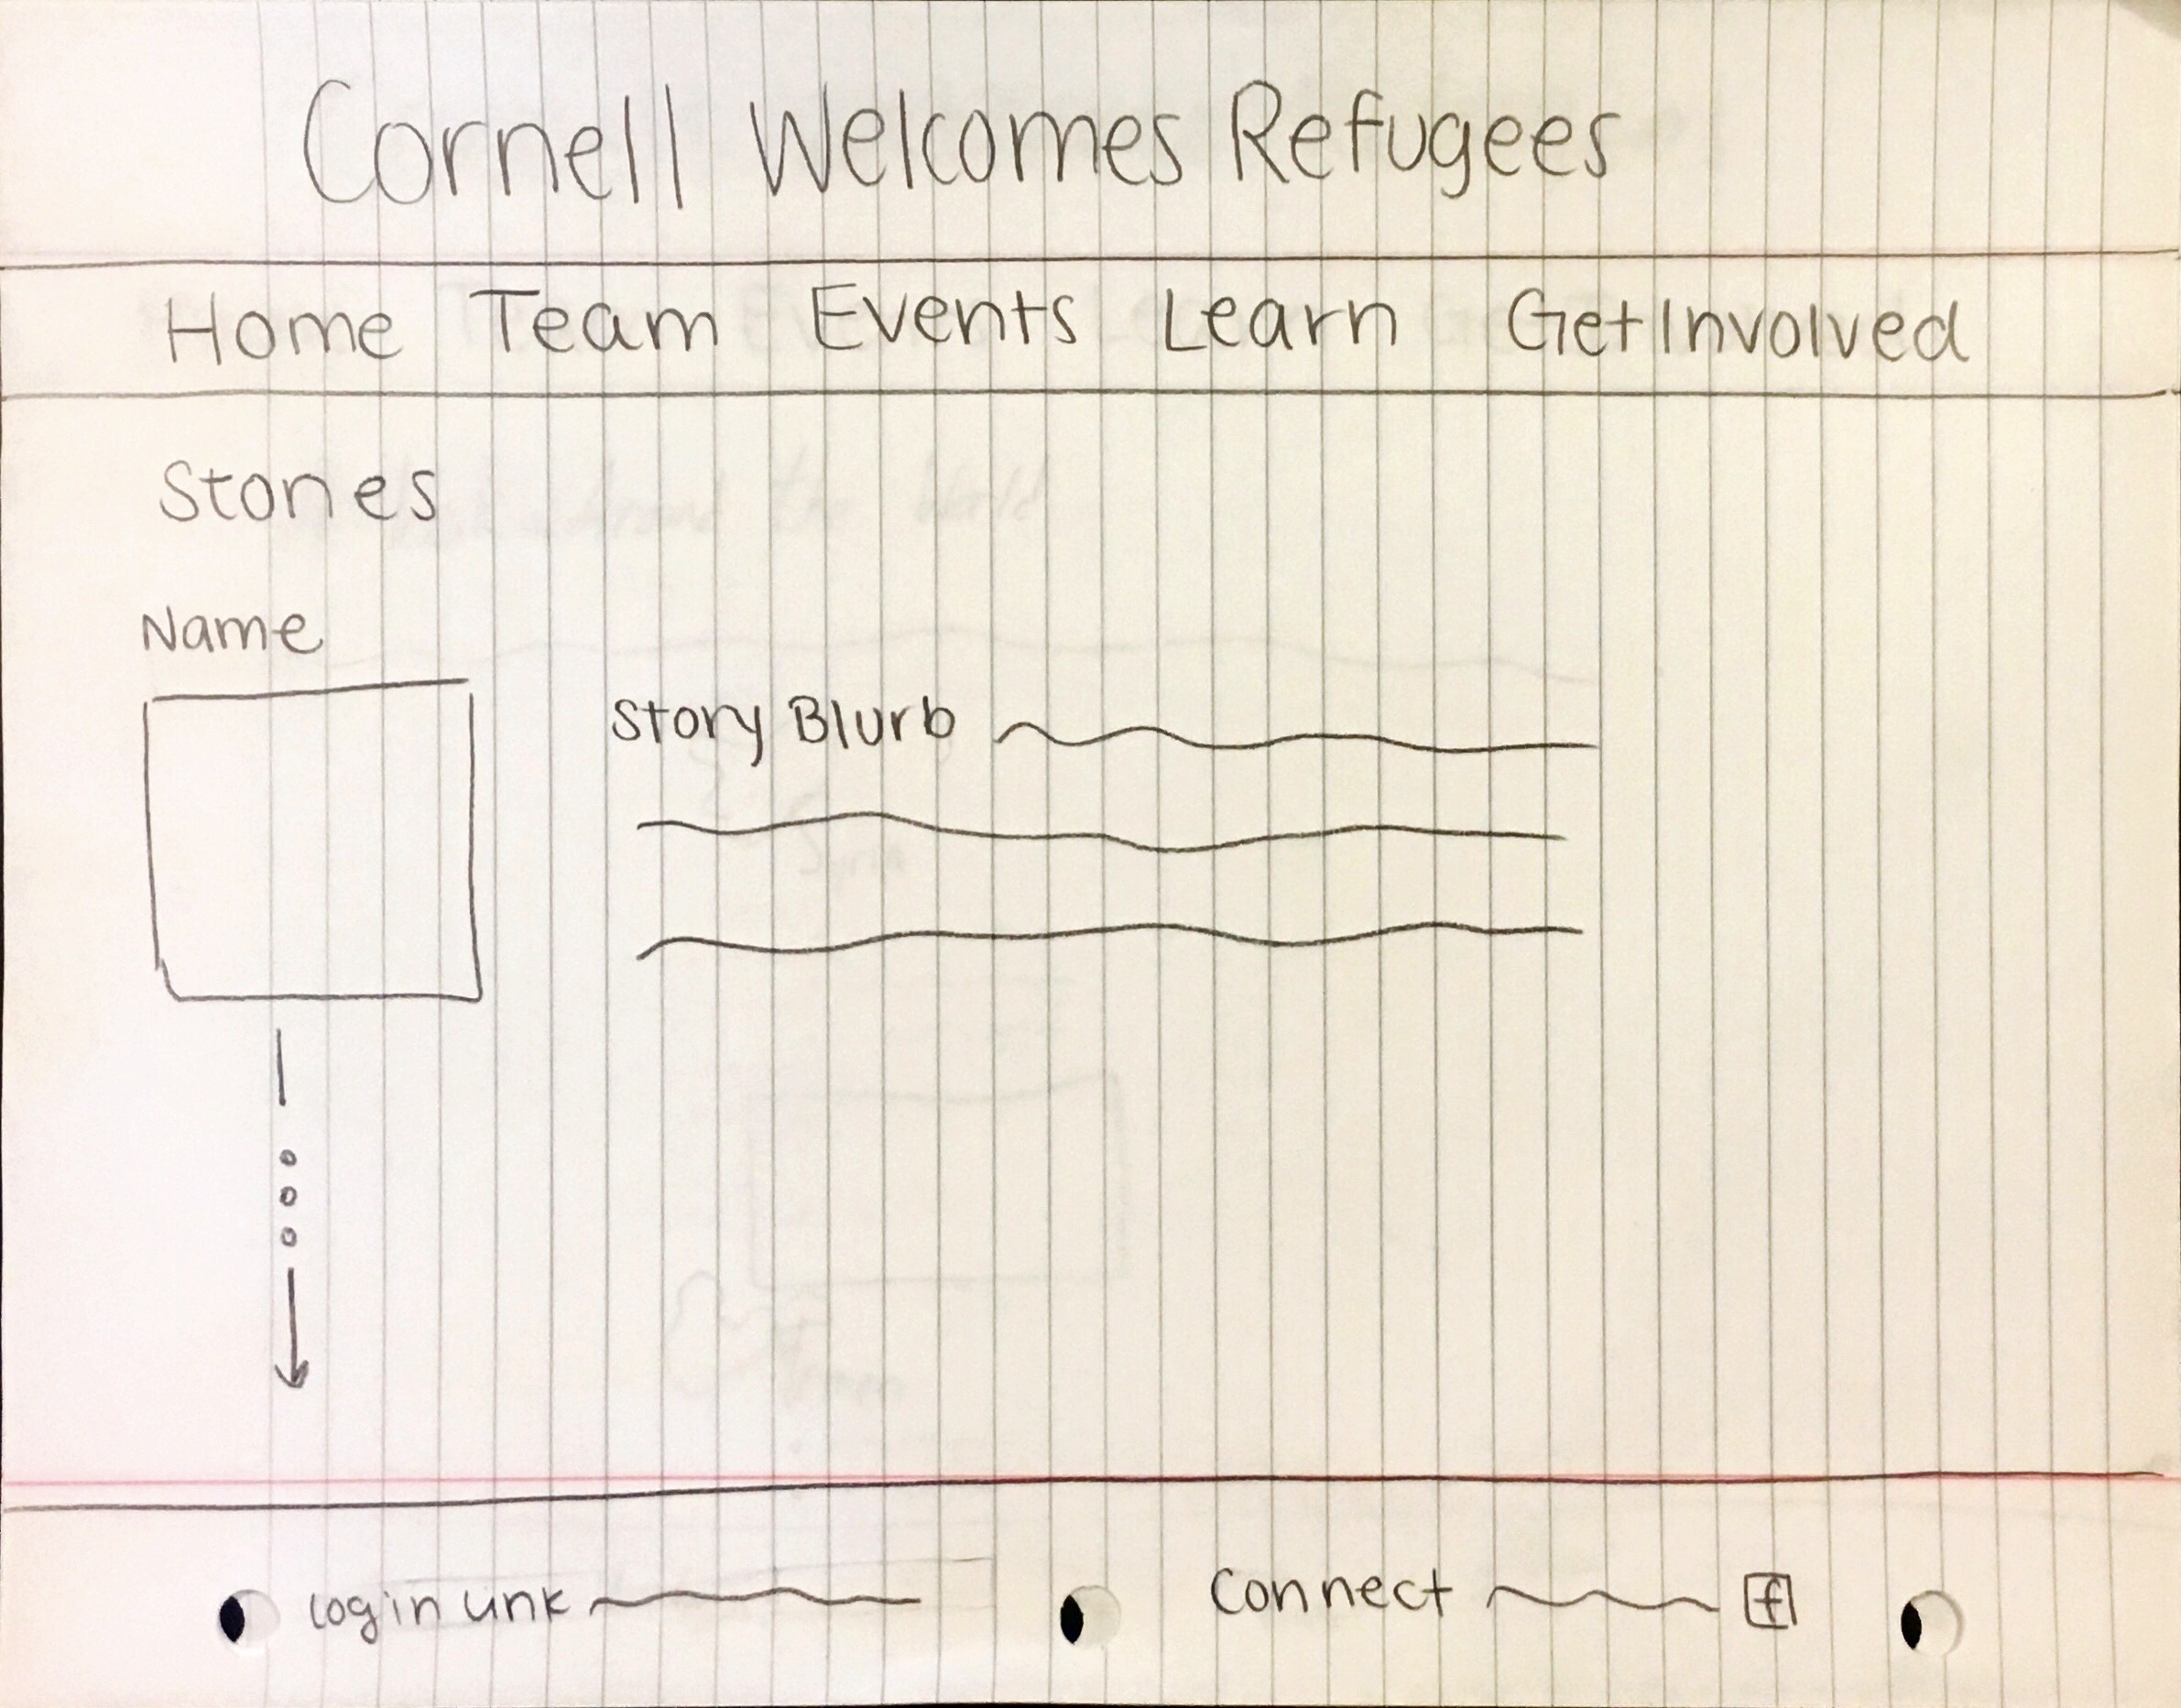 Cornell Welcomes Refugees
Home Team Events Learn Get Involved
Stories
Name
Story Blurb
login link Connect f
around the World
Syria